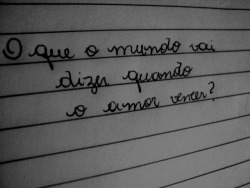 O que o mundo vai
dizer quando
o amor vencer?